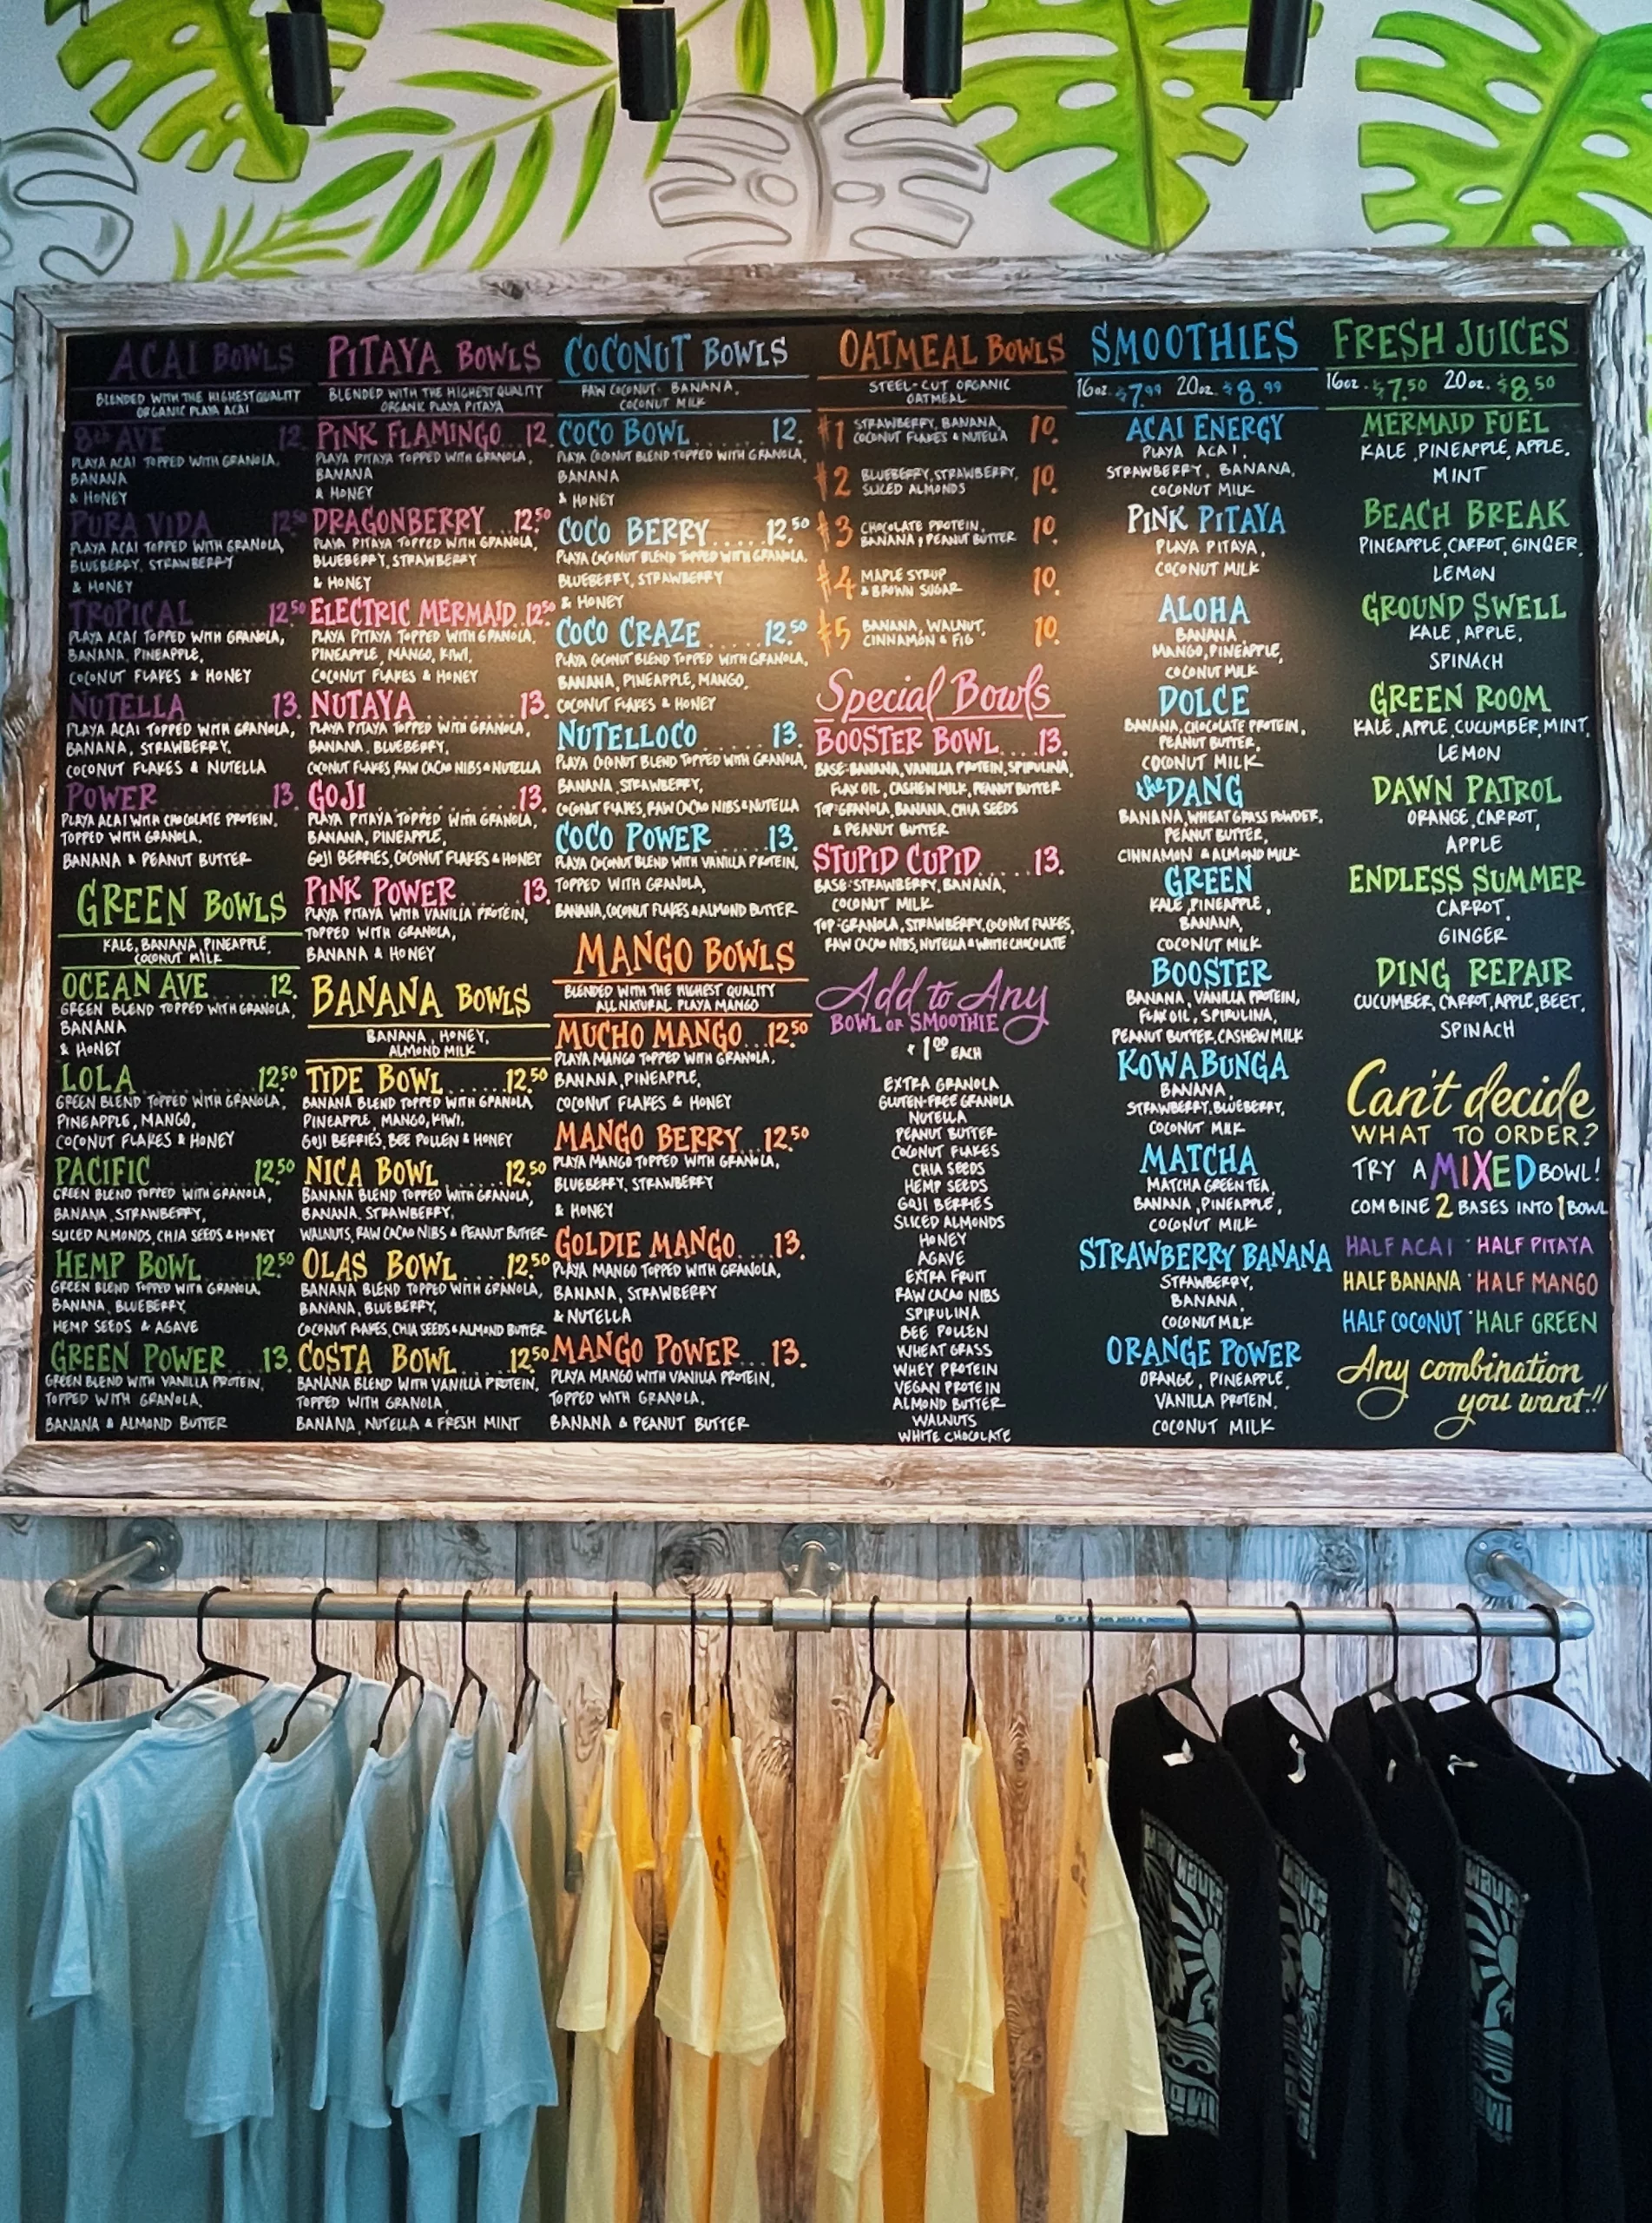 ACAI BOWLS
BLENDED WITH THE HIGHEST QUALITY
ORGANIC PLAYA ACAI
8th AVE 12.
PLAYA ACAI TOPPED WITH GRANOLA,
BANANA
& HONEY
PURA VIDA 12.50
PLAYA ACAI TOPPED WITH GRANOLA,
BLUEBERRY, STRAWBERRY
& HONEY
TROPICAL 12.50
PLAYA ACAI TOPPED WITH GRANOLA,
BANANA, PINEAPPLE,
COCONUT FLAKES & HONEY
NUTELLA 13.
PLAYA ACAI TOPPED WITH GRANOLA,
BANANA, STRAWBERRY,
COCONUT FLAKES & NUTELLA
POWER 13.
PLAYA ACAI WITH CHOCOLATE PROTEIN,
TOPPED WITH GRANOLA,
BANANA & PEANUT BUTTER
GREEN BOWLS
KALE, BANANA, PINEAPPLE,
COCONUT MILK
OCEAN AVE 12.
GREEN BLEND TOPPED WITH GRANOLA,
BANANA
& HONEY
LOLA 12.50
GREEN BLEND TOPPED WITH GRANOLA,
PINEAPPLE, MANGO,
COCONUT FLAKES & HONEY
PACIFIC 12.50
GREEN BLEND TOPPED WITH GRANOLA,
BANANA, STRAWBERRY,
SLICED ALMONDS, CHIA SEEDS & HONEY
HEMP BOWL 12.50
GREEN BLEND TOPPED WITH GRANOLA,
BANANA, BLUEBERRY,
HEMP SEEDS & AGAVE
GREEN POWER 13.
GREEN BLEND WITH VANILLA PROTEIN,
TOPPED WITH GRANOLA,
BANANA & ALMOND BUTTER
PITAYA BOWLS
BLENDED WITH THE HIGHEST QUALITY
ORGANIC PLAYA PITAYA
PINK FLAMINGO 12.
PLAYA PITAYA TOPPED WITH GRANOLA,
BANANA
& HONEY
DRAGONBERRY 12.50
PLAYA PITAYA TOPPED WITH GRANOLA,
BLUEBERRY, STRAWBERRY
& HONEY
ELECTRIC MERMAID 12.50
PLAYA PITAYA TOPPED WITH GRANOLA,
PINEAPPLE, MANGO, KIWI,
COCONUT FLAKES & HONEY
NUTAYA 13.
PLAYA PITAYA TOPPED WITH GRANOLA,
BANANA, BLUEBERRY,
COCONUT FLAKES, RAW CACAO NIBS & NUTELLA
GOJI 13.
PLAYA PITAYA TOPPED WITH GRANOLA,
BANANA, PINEAPPLE,
GOJI BERRIES, COCONUT FLAKES & HONEY
PINK POWER 13.
PLAYA PITAYA WITH VANILLA PROTEIN,
TOPPED WITH GRANOLA,
BANANA & HONEY
BANANA BOWLS
BANANA, HONEY,
ALMOND MILK
TIDE BOWL 12.50
BANANA BLEND TOPPED WITH GRANOLA,
PINEAPPLE, MANGO, KIWI,
GOJI BERRIES, BEE POLLEN & HONEY
NICA BOWL 12.50
BANANA BLEND TOPPED WITH GRANOLA,
BANANA, STRAWBERRY,
WALNUTS, RAW CACAO NIBS & PEANUT BUTTER
OLAS BOWL 12.50
BANANA BLEND TOPPED WITH GRANOLA,
BANANA, BLUEBERRY,
COCONUT FLAKES, CHIA SEEDS & ALMOND BUTTER
COSTA BOWL 12.50
BANANA BLEND WITH VANILLA PROTEIN,
TOPPED WITH GRANOLA,
BANANA, NUTELLA & FRESH MINT
COCONUT BOWLS
RAW COCONUT, BANANA,
COCONUT MILK
COCO BOWL 12.
PLAYA COCONUT BLEND TOPPED WITH GRANOLA,
BANANA
& HONEY
COCO BERRY 12.50
PLAYA COCONUT BLEND TOPPED WITH GRANOLA,
BLUEBERRY, STRAWBERRY
& HONEY
COCO CRAZE 12.50
PLAYA COCONUT BLEND TOPPED WITH GRANOLA,
BANANA, PINEAPPLE, MANGO,
COCONUT FLAKES & HONEY
NUTELLOCO 13.
PLAYA COCONUT BLEND TOPPED WITH GRANOLA,
BANANA, STRAWBERRY,
COCONUT FLAKES, RAW CACAO NIBS & NUTELLA
COCO POWER 13.
PLAYA COCONUT BLEND WITH VANILLA PROTEIN,
TOPPED WITH GRANOLA,
BANANA, COCONUT FLAKES & ALMOND BUTTER
MANGO BOWLS
BLENDED WITH THE HIGHEST QUALITY
ALL NATURAL PLAYA MANGO
MUCHO MANGO 12.50
PLAYA MANGO TOPPED WITH GRANOLA,
BANANA, PINEAPPLE,
COCONUT FLAKES & HONEY
MANGO BERRY 12.50
PLAYA MANGO TOPPED WITH GRANOLA,
BLUEBERRY, STRAWBERRY
& HONEY
GOLDIE MANGO 13.
PLAYA MANGO TOPPED WITH GRANOLA,
BANANA, STRAWBERRY
& NUTELLA
MANGO POWER 13.
PLAYA MANGO WITH VANILLA PROTEIN,
TOPPED WITH GRANOLA,
BANANA & PEANUT BUTTER
OATMEAL BOWLS
STEEL-CUT ORGANIC
OATMEAL
#1 STRAWBERRY, BANANA, 10.
COCONUT FLAKES & NUTELLA
#2 BLUEBERRY, STRAWBERRY, 10.
SLICED ALMONDS
#3 CHOCOLATE PROTEIN, 10.
BANANA, PEANUT BUTTER
#4 MAPLE SYRUP 10.
& BROWN SUGAR
#5 BANANA, WALNUT, 10.
CINNAMON & FIG
Special Bowls
BOOSTER BOWL 13.
BASE: BANANA, VANILLA PROTEIN, SPIRULINA,
FLAX OIL, CASHEW MILK, PEANUT BUTTER
TOP: GRANOLA, BANANA, CHIA SEEDS
& PEANUT BUTTER
STUPID CUPID 13.
BASE: STRAWBERRY, BANANA,
COCONUT MILK
TOP: GRANOLA, STRAWBERRY, COCONUT FLAKES,
RAW CACAO NIBS, NUTELLA & WHITE CHOCOLATE
Add to Any
BOWL OR SMOOTHIE
$1.00 EACH
EXTRA GRANOLA
GLUTEN-FREE GRANOLA
NUTELLA
PEANUT BUTTER
COCONUT FLAKES
CHIA SEEDS
HEMP SEEDS
GOJI BERRIES
SLICED ALMONDS
HONEY
AGAVE
EXTRA FRUIT
RAW CACAO NIBS
SPIRULINA
BEE POLLEN
WHEAT GRASS
WHEY PROTEIN
VEGAN PROTEIN
ALMOND BUTTER
WALNUTS
WHITE CHOCOLATE
SMOOTHIES
16oz. $7.99 20oz. $8.99
ACAI ENERGY
PLAYA ACAI,
STRAWBERRY, BANANA,
COCONUT MILK
PINK PITAYA
PLAYA PITAYA,
COCONUT MILK
ALOHA
BANANA,
MANGO, PINEAPPLE,
COCONUT MILK
DOLCE
BANANA, CHOCOLATE PROTEIN,
PEANUT BUTTER,
COCONUT MILK
the DANG
BANANA, WHEAT GRASS POWDER,
PEANUT BUTTER,
CINNAMON & ALMOND MILK
GREEN
KALE, PINEAPPLE,
BANANA,
COCONUT MILK
BOOSTER
BANANA, VANILLA PROTEIN,
FLAX OIL, SPIRULINA,
PEANUT BUTTER, CASHEW MILK
KOWABUNGA
BANANA,
STRAWBERRY, BLUEBERRY,
COCONUT MILK
MATCHA
MATCHA GREEN TEA,
BANANA, PINEAPPLE,
COCONUT MILK
STRAWBERRY BANANA
STRAWBERRY,
BANANA,
COCONUT MILK
ORANGE POWER
ORANGE, PINEAPPLE,
VANILLA PROTEIN,
COCONUT MILK
FRESH JUICES
16oz. $7.50 20oz. $8.50
MERMAID FUEL
KALE, PINEAPPLE, APPLE,
MINT
BEACH BREAK
PINEAPPLE, CARROT, GINGER,
LEMON
GROUND SWELL
KALE, APPLE,
SPINACH
GREEN ROOM
KALE, APPLE, CUCUMBER, MINT,
LEMON
DAWN PATROL
ORANGE, CARROT,
APPLE
ENDLESS SUMMER
CARROT,
GINGER
DING REPAIR
CUCUMBER, CARROT, APPLE, BEET,
SPINACH
Can't decide
WHAT TO ORDER?
TRY A MIXED BOWL!
COMBINE 2 BASES INTO 1 BOWL
HALF ACAI · HALF PITAYA
HALF BANANA · HALF MANGO
HALF COCONUT · HALF GREEN
Any combination
you want!!